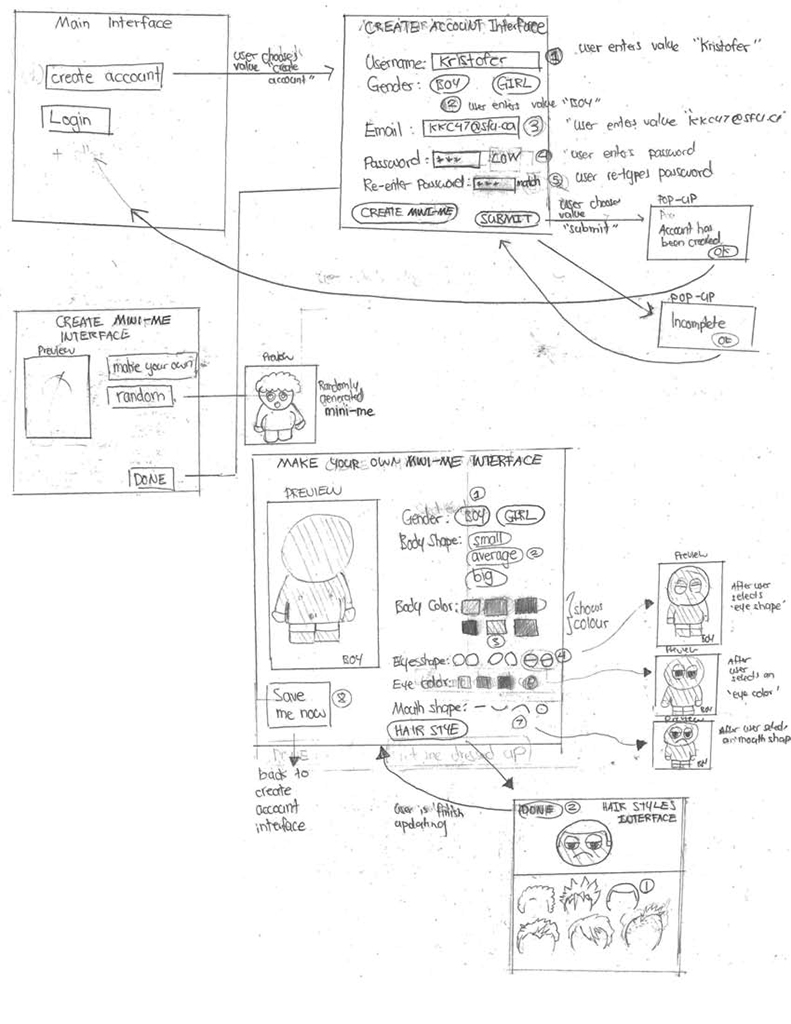 Main Interface
create account
Login
user chooses
value "create
account"
CREATE ACCOUNT Interface
Username: Kristofer
① user enters value "Kristofer"
Gender: BOY GIRL
② user enters value "BOY"
Email: KKC47@sfu.ca ③ "user enters value "KKC47@sfu.ca"
Password: *** LOW ④ user enters password
Re-enter Password: *** match ⑤ user re-types password
CREATE MINI-ME SUBMIT
user chooses
value
"submit"
POP-UP
Account has
been created
OK
POP-UP
Incomplete
OK
CREATE MINI-ME
INTERFACE
Preview
make your own
random
DONE
Preview
Randomly
generated
mini-me
MAKE YOUR OWN MINI-ME INTERFACE
PREVIEW
BOY
①
Gender: BOY GIRL
Body Shape: small
average ②
big
Body Color:
shows
colour
③
Eye shape: ④
Eye color:
Mouth shape:
⑦
HAIR STYLE
Save
me now
⑧
back to
create
account
interface
Preview
BOY
After user
selects
'eye shape'
Preview
BOY
After
user
selects an
'eye color'
Preview
After user selects
a mouth shape
User is finish
updating
DONE ② HAIR STYLES
INTERFACE
①